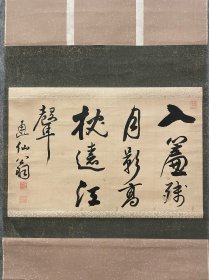 入簾殘
月影高
枕遠江
聲
仙翁